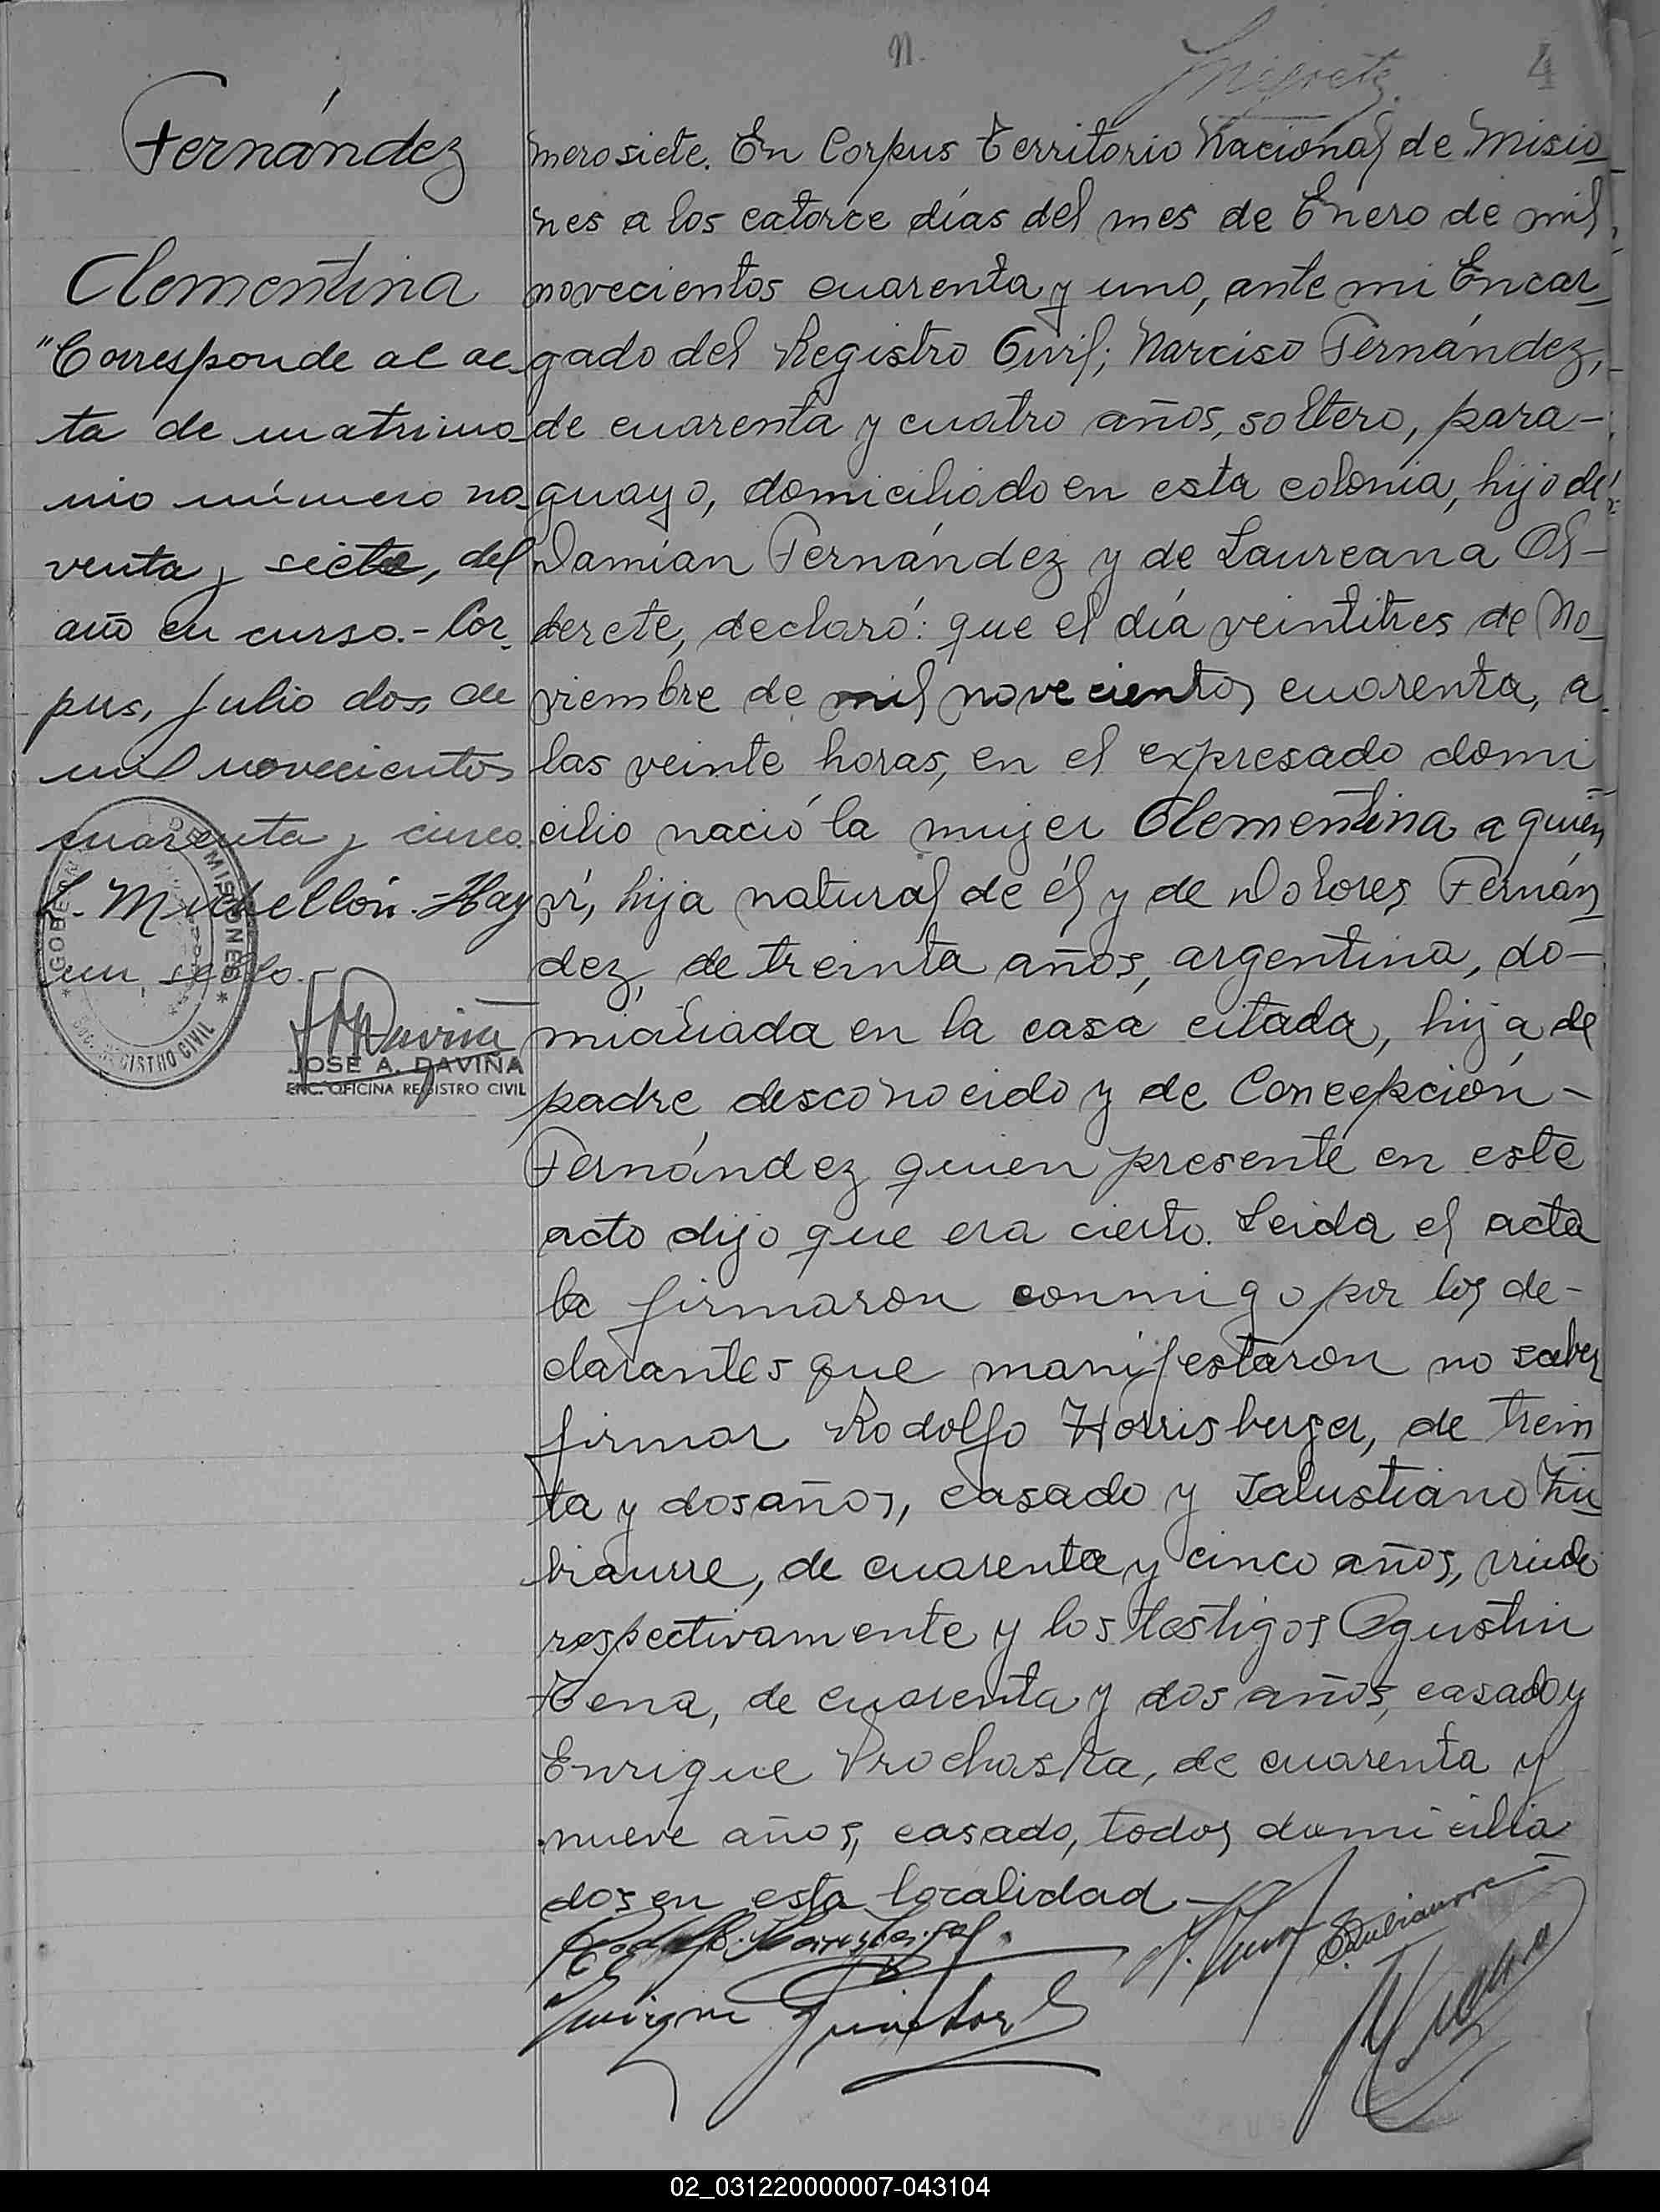 n.
4
Fernández
Clementina
"Corresponde al ac_
ta de matrimo_
nio número no_
venta y siete, del
año en curso.- Cor_
pus, Julio dos de
mil novecientos
cuarenta y cinco.
Michellón.-Hay
un sello.-
JOSE A. DAVIÑA
ENC. OFICINA REGISTRO CIVIL
MISIONES
REGISTRO CIVIL
mero siete. En Corpus Territorio Nacional de Misio_
nes a los catorce días del mes de Enero de mil
novecientos cuarenta y uno, ante mi Encar_
gado del Registro Civil; Narciso Fernández,
de cuarenta y cuatro años, soltero, para-
guayo, domiciliado en esta colonia, hijo de
Damián Fernández y de Laureana Al-
derete, declaró: que el día veintitres de No_
viembre de mil novecientos cuarenta, a
las veinte horas, en el expresado domi_
cilio nació la mujer Clementina a quien
ví, hija natural de él y de Dolores Fernán_
dez, de treinta años, argentina, do-
miciliada en la casa citada, hija de
padre desconocido y de Concepción-
Fernández quien presente en este
acto dijo que era cierto. Leida el acta
la firmaron conmigo por los de-
clarantes que manifestaron no saber
firmar Rodolfo Horrisberger, de trein_
ta y dos años, casado y Salustiano Zu_
biaurre, de cuarenta y cinco años, viudo
respectivamente y los testigos Agustin
Tena, de cuarenta y dos años, casado y
Enrique Prochaska, de cuarenta y
nueve años, casado, todos domicilia_
dos en esta localidad.-
S. Zubiaurre
02_031220000007-043104